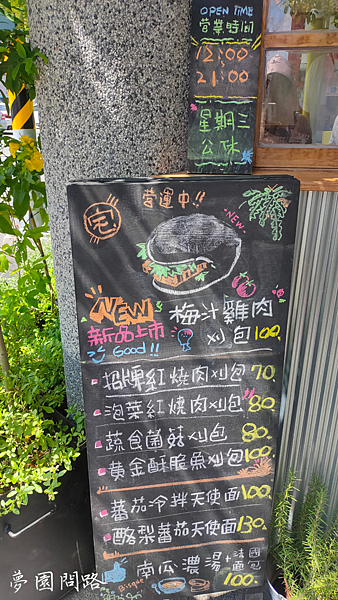 OPEN TIME
營業時間
12:00
21:00
星期三
公休
營運中!!
宅
NEW
NEW
梅汁雞肉
新品上市
刈包100.
Good!!
招牌紅燒肉刈包70.
泡菜紅燒肉刈包80.
蔬食菌菇刈包80.
黃金酥脆魚刈包100.
蕃茄冷拌天使面100.
酪梨蕃茄天使面130.
Bisque
南瓜濃湯+法國麵包
100.
夢園問路